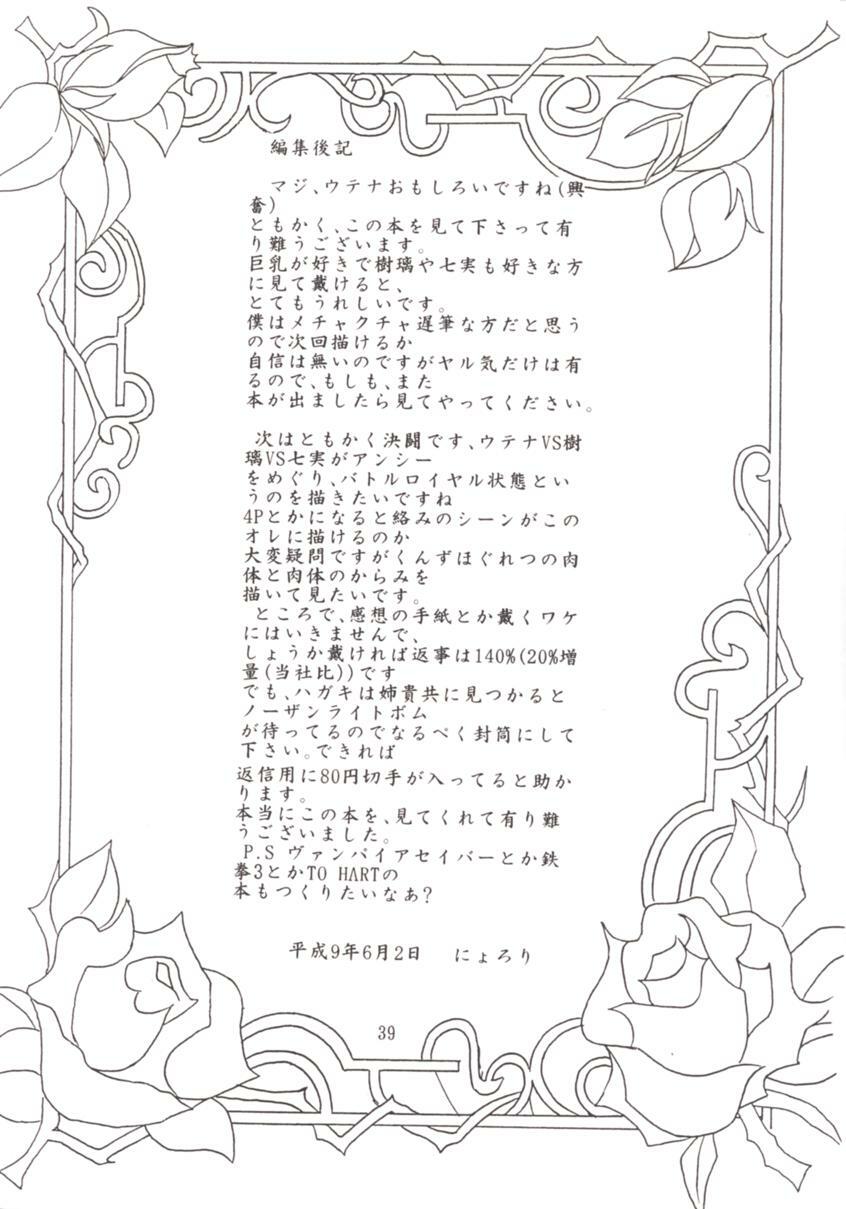 編集後記
マジ、ウテナおもしろいですね(興
奮)
ともかく、この本を見て下さって有
り難うございます。
巨乳が好きで樹璃や七実も好きな方
に見て戴けると、
とてもうれしいです。
僕はメチャクチャ遅筆な方だと思う
ので次回描けるか
自信は無いのですがヤル気だけは有
るので、もしも、また
本が出ましたら見てやってください。
次はともかく決闘です、ウテナVS樹
璃VS七実がアンシー
をめぐり、バトルロイヤル状態とい
うのを描きたいですね
4Pとかになると絡みのシーンがこの
オレに描けるのか
大変疑問ですがくんずほぐれつの肉
体と肉体のからみを
描いて見たいです。
ところで、感想の手紙とか戴くワケ
にはいきませんで、
しょうか戴ければ返事は140%(20%増
量(当社比))です
でも、ハガキは姉貴共に見つかると
ノーザンライトボム
が待ってるのでなるべく封筒にして
下さい。できれば
返信用に80円切手が入ってると助か
ります。
本当にこの本を、見てくれて有り難
うございました。
P.S ヴァンパイアセイバーとか鉄
拳3とかTO HARTの
本もつくりたいなあ?
平成9年6月2日 にょろり
39